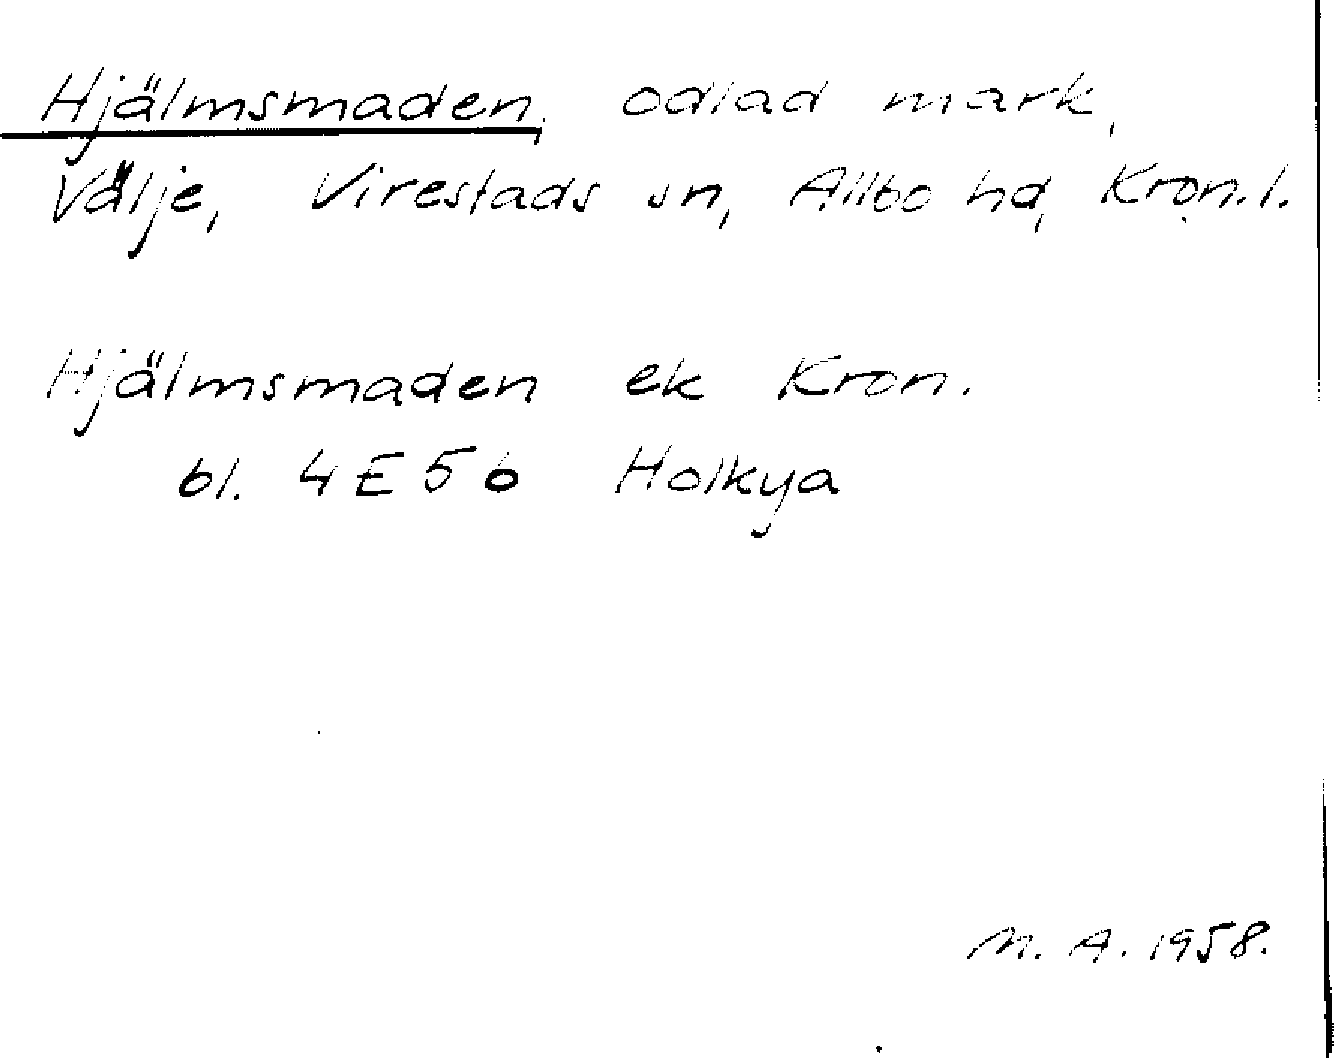 Hjälmsmaden, odlad mark,
Välje, Virestads sn, Allbo hd, Kron.l.
Hjälmsmaden ek Kron.
bl. 4E5b Holkya
M. A. 1958.